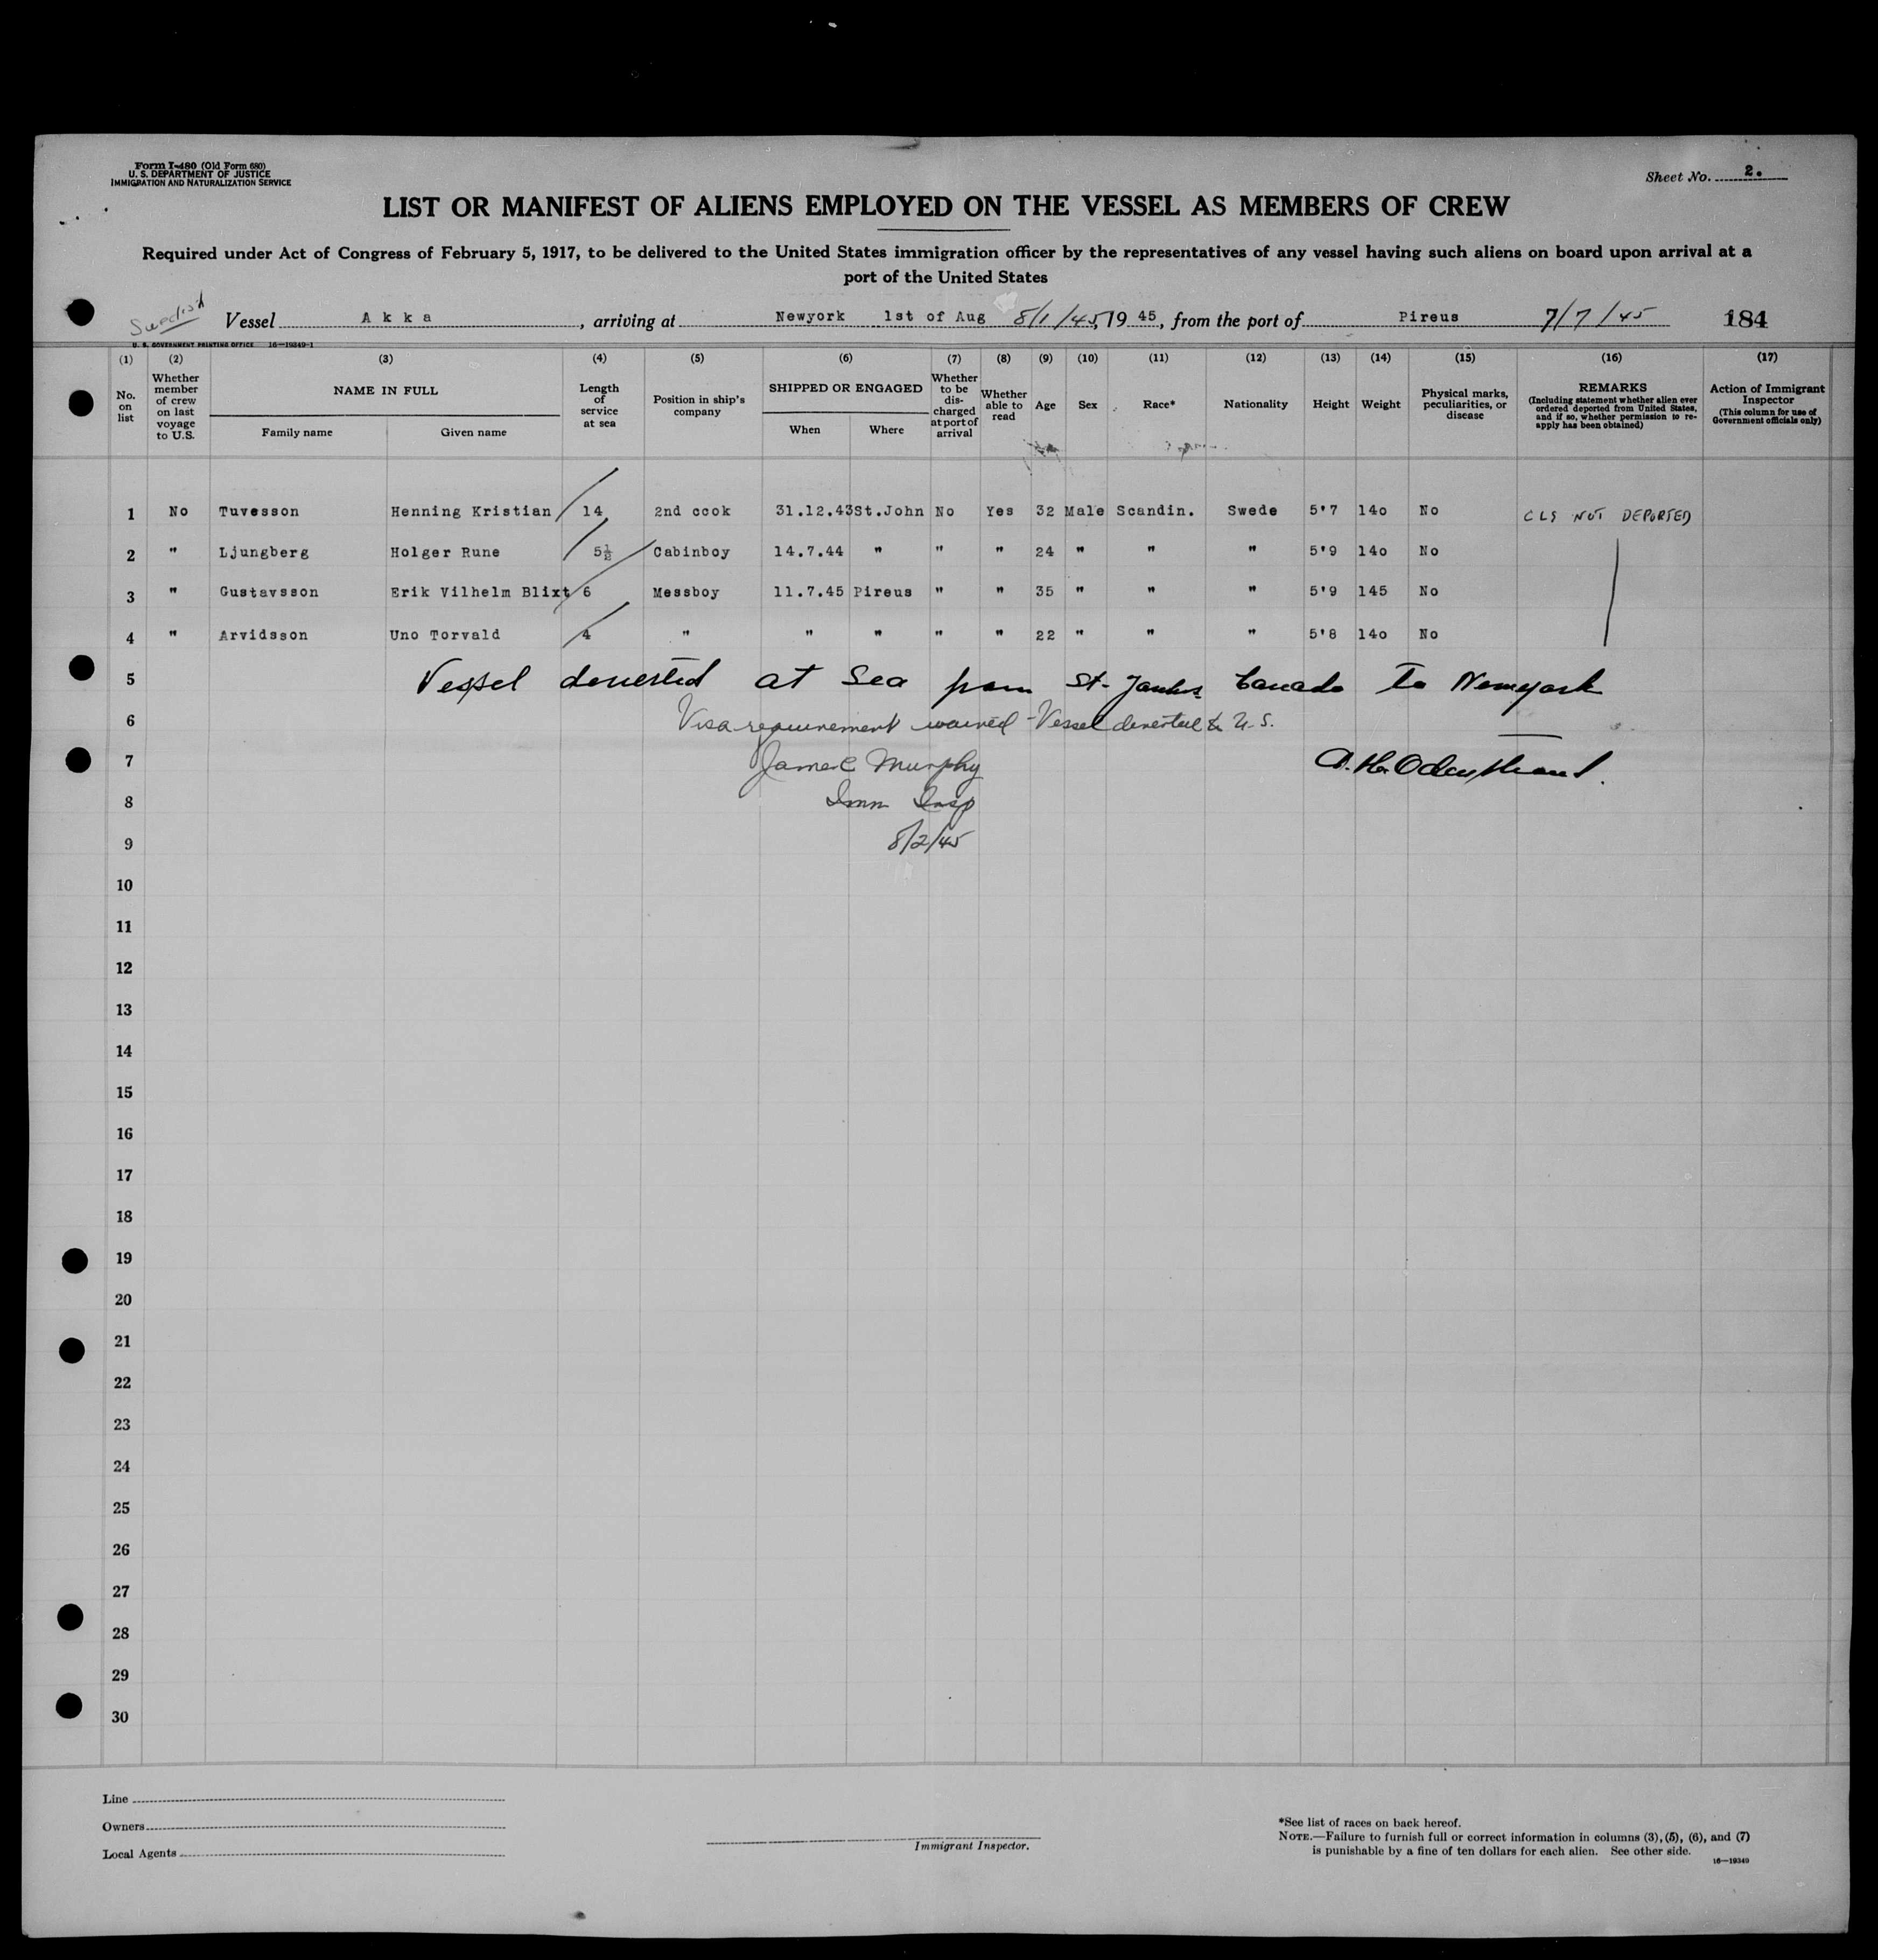 Form I-480 (Old Form 680)
U. S. DEPARTMENT OF JUSTICE
IMMIGRATION AND NATURALIZATION SERVICE
Sheet No. 2.
LIST OR MANIFEST OF ALIENS EMPLOYED ON THE VESSEL AS MEMBERS OF CREW
Required under Act of Congress of February 5, 1917, to be delivered to the United States immigration officer by the representatives of any vessel having such aliens on board upon arrival at a
port of the United States
Swedish Vessel Akka, arriving at Newyork 1st of Aug 8/1/45, 1945, from the port of Pireus 7/7/45 184
U. S. GOVERNMENT PRINTING OFFICE 16—19349-1
(1) (2) (3) (4) (5) (6) (7) (8) (9) (10) (11) (12) (13) (14) (15) (16) (17)
No. on list
Whether member of crew on last voyage to U.S.
NAME IN FULL
Family name Given name
Length of service at sea
Position in ship's company
SHIPPED OR ENGAGED
When Where
Whether to be discharged at port of arrival
Whether able to read
Age
Sex
Race*
Nationality
Height
Weight
Physical marks, peculiarities, or disease
REMARKS
(Including statement whether alien ever ordered deported from United States, and if so, whether permission to re-apply has been obtained)
Action of Immigrant Inspector
(This column for use of Government officials only)
1 No Tuvesson Henning Kristian 14 2nd cook 31.12.43 St.John No Yes 32 Male Scandin. Swede 5'7 14o No CLS NOT DEPORTED
2 " Ljungberg Holger Rune 5½ Cabinboy 14.7.44 " " " 24 " " " 5'9 14o No
3 " Gustavsson Erik Vilhelm Blixt 6 Messboy 11.7.45 Pireus " " 35 " " " 5'9 145 No
4 " Arvidsson Uno Torvald 4 " " " " " 22 " " " 5'8 14o No
5 Vessel deverted at Sea from St- Johns Canada to Newyork
6 Visa requirement waived - Vessel deverted to U.S.
7 James Murphy
8 Imm Insp
9 8/2/45
10
11
12
13
14
15
16
17
18
19
20
21
22
23
24
25
26
27
28
29
30
Line
Owners
Local Agents
Immigrant Inspector.
*See list of races on back hereof.
NOTE.—Failure to furnish full or correct information in columns (3), (5), (6), and (7)
is punishable by a fine of ten dollars for each alien. See other side.
16—19349